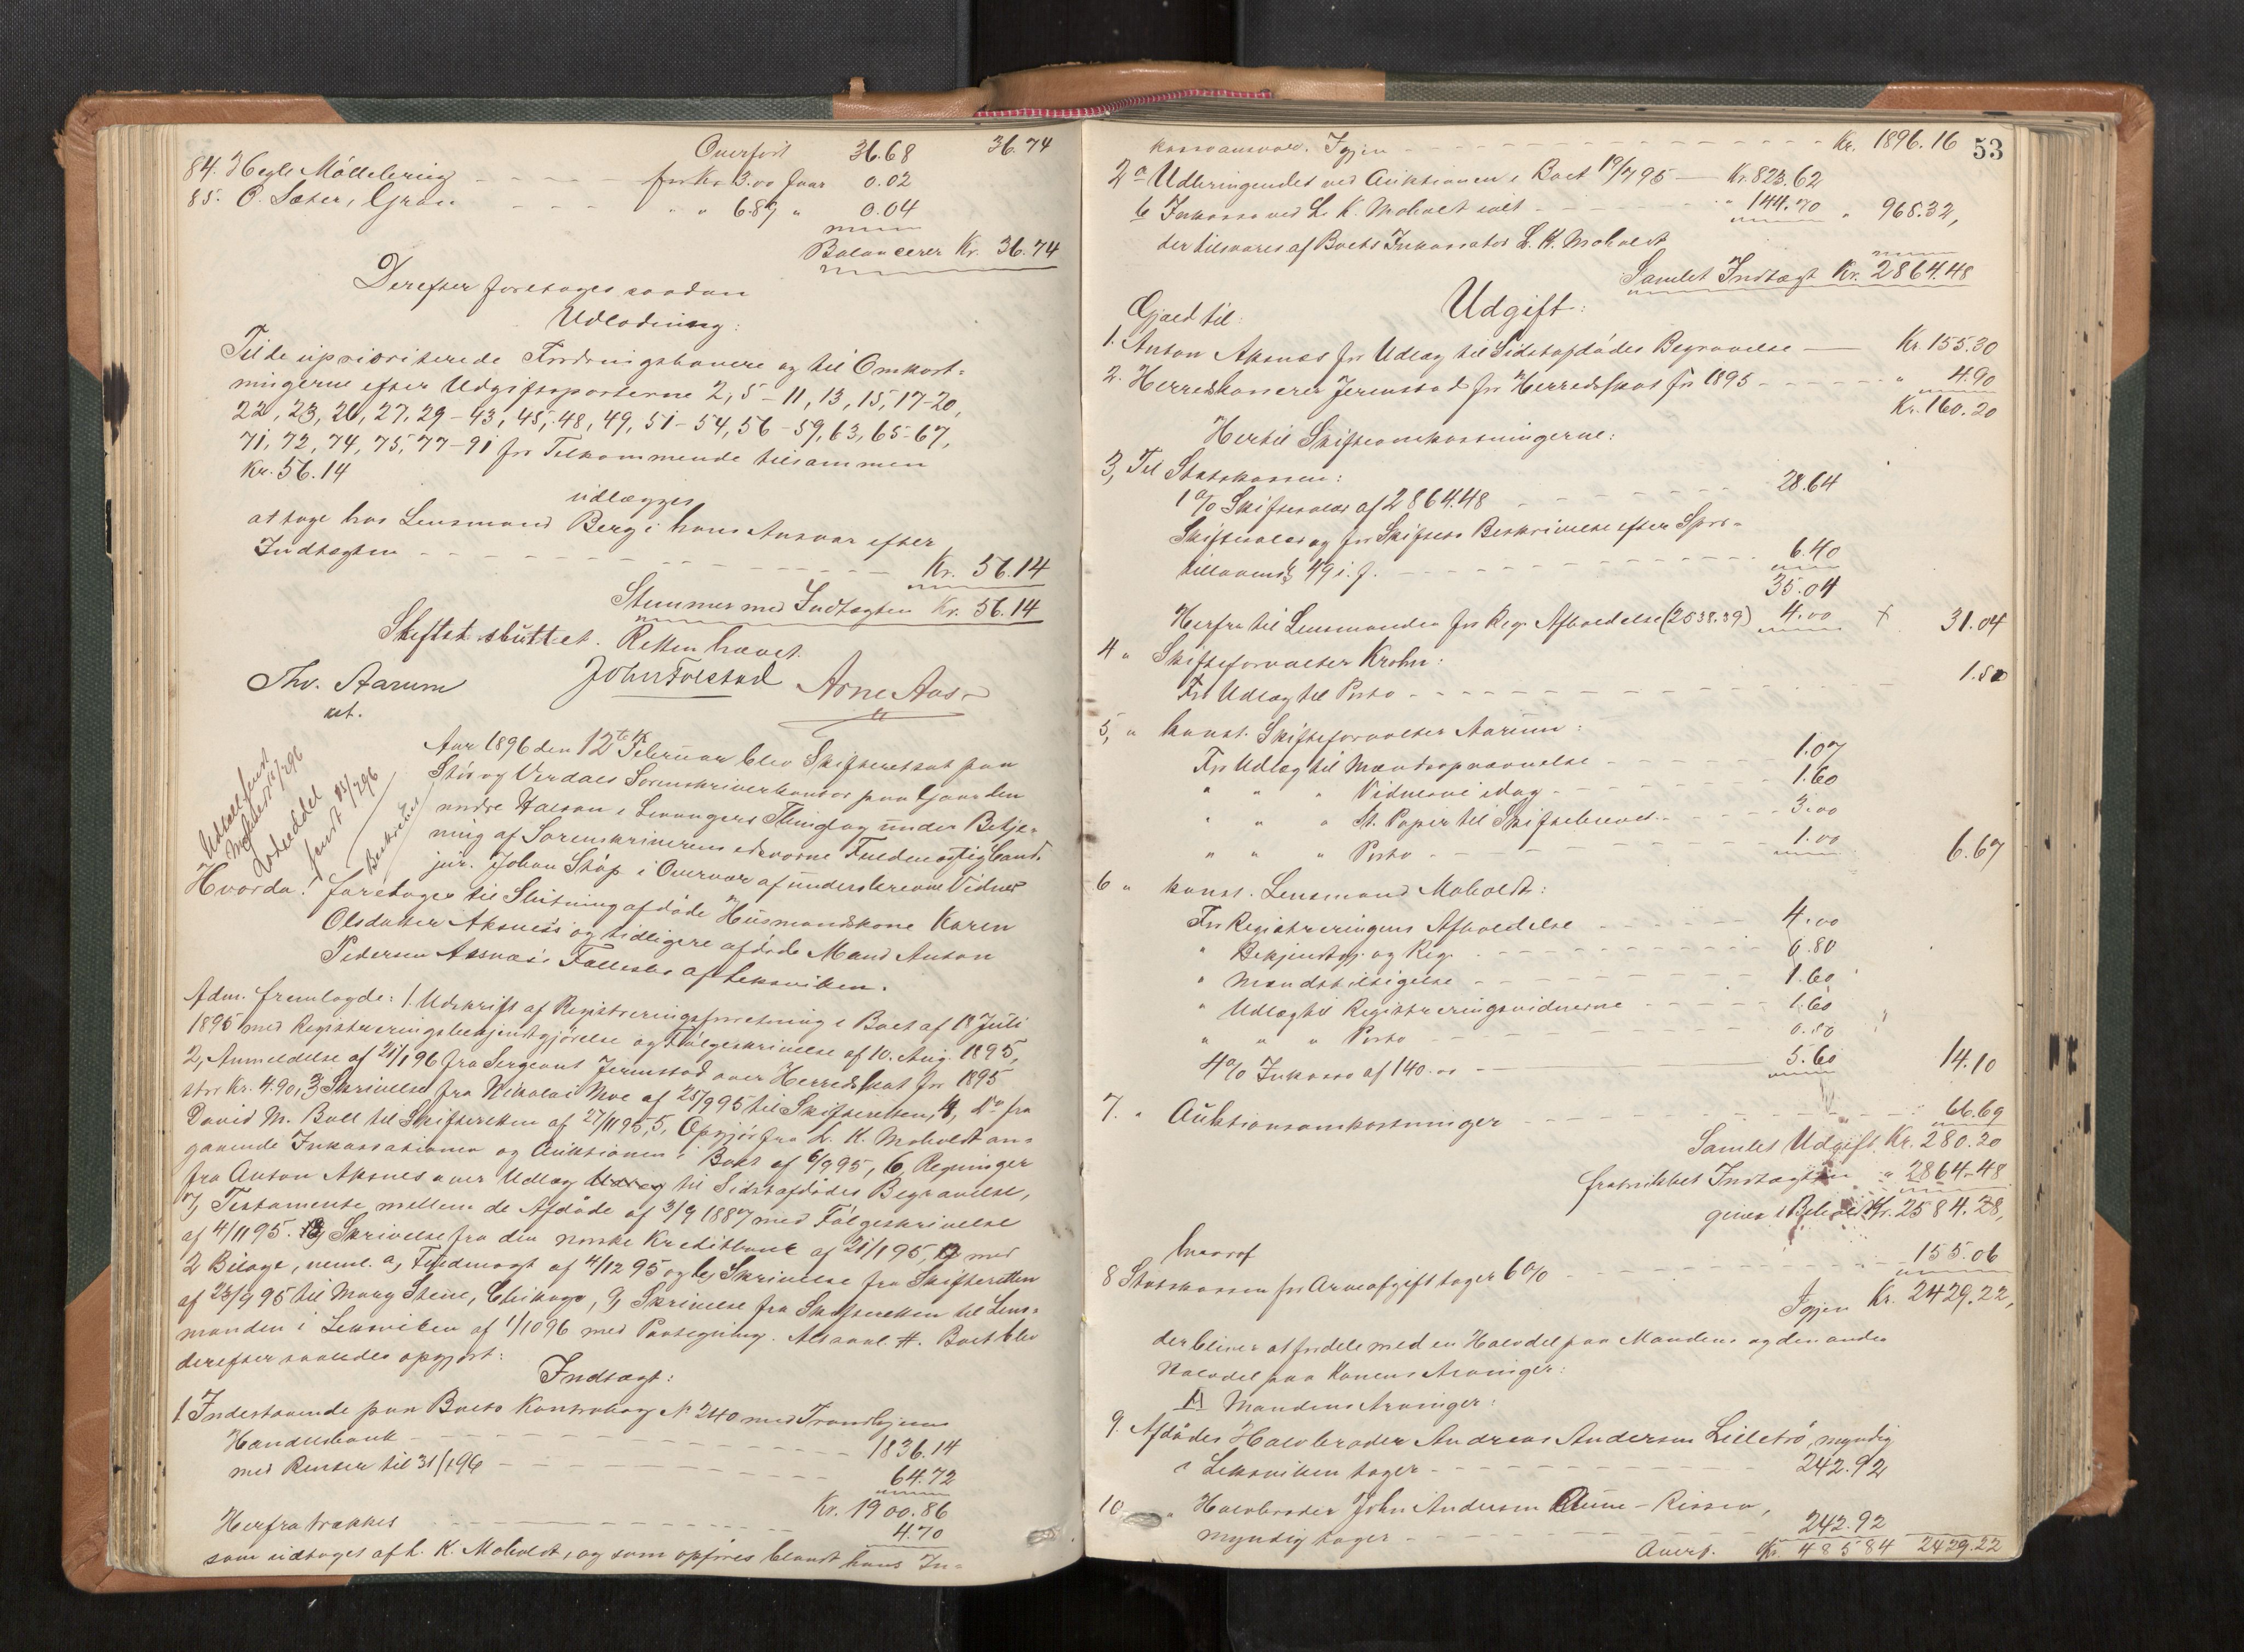 Overført 36.68 36.74
84. Hegle Møllebring – – – – for Kr. 3.00 faar 0.02
85. O. Sæter, Gran – – – " " 6.87 " 0.04
Balancerer Kr. 36.74
Derefter foretoges saadan
Udlodning:
Til de uprioriterede Fordringshavere og til Omkost-
ningerne efter Udgiftsposterne 2, 5–11, 13, 15, 17–20,
22, 23, 26, 27, 29–43, 45, 48, 49, 51–54, 56–59, 63, 65–67,
71, 72, 74, 75, 77–91 for Tilkommende tilsammen
Kr. 56.14
udlægges
at tage hos Lensmand Berg i hans Ansvar efter
Indtægten – – – – – – – – Kr. 56.14
Stemmer med Indtægten Kr. 56.14
Skiftet sluttet. Retten hævet.
Thv. Aarum John Folstad Arne Aas
cst.
Aar 1896 den 12te Februar blev Skifteret sat paa
Stør og Verdals Sorenskriverkontor paa Gaarden
nordre Halsan i Levangers Thinglag under Betje-
ning af Sorenskriverens edsvorne Fuldmægtig Cand.
jur. Johan Støp i Overvær af underskrevne Vidner
Hvorda: foretoges til Slutning afdøde Husmandskone Karen
Olsdatter Aksnes's og tidligere afdøde Mand Anton
Pedersen Aksnæs's Fællesbo af Leksviken.
Adm. fremlagde: 1. Udskrift af Registreringsforretning i Boet af 18 Juli
1895 med Registreringsbekjendtgjørelse og Følgeskrivelse af 10. Aug. 1895,
2, Anmeldelse af 21/1 96 fra Sergeant Jermstad over Herredsskat for 1895
stor Kr. 4.90, 3, Skrivelse fra Nikolai Moe af 25/9 95 til Skifteretten, 4, do fra
David M. Bull til Skifteretten af 27/11 95, 5, Opgjør fra L. K. Moholdt an-
gaaende Inkassationen og Auktionen i Boet af 6/9 95, 6, Regninger
fra Anton Aksnes over Udlæg til Sidstafdødes Begravelse,
7, Testamente mellem de Afdøde af 3/9 1887 med Følgeskrivelse
af 4/11 95. 8, Skrivelse fra den norske Kreditbank af 21/1 95, med
2 Bilage, neml. a, Fuldmagt af 4/12 95 og b, Skrivelse fra Skifteretten
af 23/9 95 til Mary Steine, Chikago, 9, Skrivelse fra Skifteretten til Lens-
manden i Leksviken af 1/10 96 med Paategning. Alsaal. #. Boet blev
derefter saaledes opgjort:
Indtægt:
1 Indestaaende paa Boets Kontrabog No 240 med Trondhjems
Handelsbank – – – – – – – 1836.14
med Renter til 31/1 96 – – – – 64.72
Kr. 1900.86
Herfra trækkes – – – – – – 4.70
som udtoges af L. K. Moholdt, og som opføres blandt hans In-
53
kassoansvar. Igjen – – – – – – Kr. 1896.16
2 a Udbringendet ved Auktionen i Boet 19/7 95 – Kr. 823.62
b Inkasso ved L. K. Moholdt ialt – – – " 144.70 " 968.32,
der tilsvares af Boets Inkassator L. K. Moholdt
Samlet Indtægt Kr. 2864.48
Udgift:
Gjæld til:
1. Anton Aksnæs for Udlæg til Sidstafdødes Begravelse – Kr. 155.30
2. Herredskasserer Jermstad for Herredsskat for 1895 – – – " 4.90
Kr. 160.20
Hertil Skifteomkostningerne:
3, Til Statskassen:
1 % Skiftesalær af 2864.48 – – – – – 28.64
Skiftesalær og for Skiftets Beskrivelse efter Spor-
tellovens § 49 i. f. – – – – – – 6.40
35.04
Herfra til Lensmanden for Reg. Afholdelse (2538.39) 4.00 + 31.04
4 " Skifteforvalter Krohn:
For Udlæg til Porto – – – – – – – 1.50
5, " konst. Skifteforvalter Aarum:
For Udlæg til Mandsopnævnelse – – – 1.07
" " " Vidnerne idag – – – – 1.60
" " " St. Papir til Skiftebrevet – – 3.00
" " " Porto – – – – – – 1.00 6.67
6 " konst. Lensmand Moholdt:
For Registreringens Afholdelse – – – 4.00
" Bekjendtgj. og Reg. – – – – – 0.80
" Mandstilsigelse – – – – – 1.60
" Udlæg til Registreringsvidnerne – – – 1.60
" " " Porto – – – – – 0.50
4 % Inkasso af 140.00 – – – – 5.60 14.10
7. " Auktionsomkostninger – – – – – – 66.69
Samlet Udgift Kr. 280.20
fratrukket Indtægten " 2864.48
giver i Behold Kr. 2584.28,
hvoraf
8 Statskassen for Arveafgift tager 6 % – – – 155.06
Igjen Kr. 2429.22,
der bliver at fordele med en Halvdel paa Mandens og den anden
Halvdel paa Konens Arvinger:
A Mandens Arvinger:
9. Afdødes Halvbroder Andreas Andersen Lilletrø, myndig
i Leksviken tager – – – – – – 242.92
10. " Halvbroder John Andersen Rissen,
myndig tager – – – – – – 242.92
Overf. Kr. 485 84 2429.22